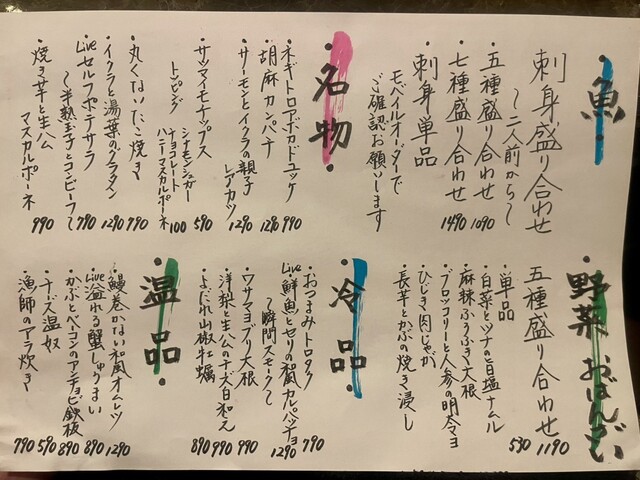 ・魚・
刺身盛り合わせ
〜二人前から〜
・五種盛り合わせ 1090
・七種盛り合わせ 1490
刺身単品
モバイルオーダーで
ご確認お願いします
・名物・
・ネギトロアボカドユッケ 990
・胡麻カンパチ 1290
・サーモンとイクラの親子
レアカツ 1290
・サツマイモチップス 590
トッピング
シナモンシュガー
チョコレート
ハニーマスカルポーネ 100
・丸くないたこ焼き 790
・イクラと湯葉のグラタン 1290
・Liveセルフポテサラ
〜半熟玉子とコンビーフ〜 790
・焼き芋と生ハム
マスカルポーネ 990
・野菜おばんざい
五種盛り合わせ 1190
・単品 590
・白菜とツナの旨塩ナムル
・麻辣ふろふき大根
・ブロッコリーと人参の明太マヨ
・ひじき肉じゃが
・長芋とかぶの焼き浸し
・冷品・
・おつまみトロタク 790
・Live鮮魚とセリの和風カルパッチョ
〜瞬間スモーク〜 1290
・ワサマヨブリ大根 990
・洋梨と生ハムのチーズ白和え 990
・よだれ山椒牡蠣 890
・温品・
・鰻巻かない和風オムレツ 1290
・Live溢れる蟹しゅうまい 890
・かぶとベーコンのアンチョビ鉄板 890
・チーズ温奴 590
・漁師のアラ炊き 790